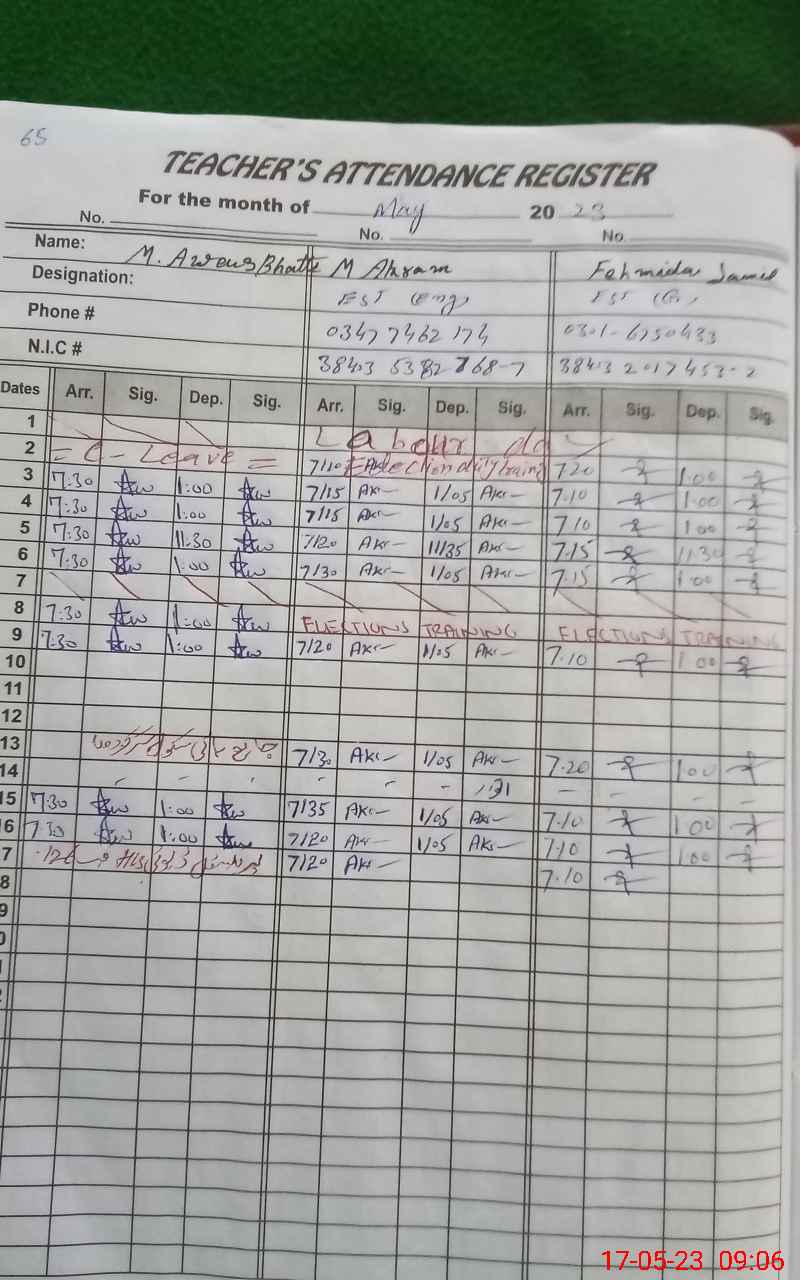 65
TEACHER'S ATTENDANCE REGISTER
For the month of May 20 23
No. No. No.
Name: M. Awaus Bhatti M Akram Fehmida Jamil
Designation: EST (Eng) EST
Phone # 0347 7462 174 0301-6750433
N.I.C # 38403 2017453-2
Dates Arr. Sig. Dep. Sig. Arr. Sig. Dep. Sig. Arr. Sig. Dep. Sig.
1 Labour day
2 = C - Leave = 7/10 Election duty training 7.20 1.00
3 7:30 1:00 7/15 Akr 1/05 Akr 7.10 1.00
4 7:30 1:00 7/15 Akr 1/05 Akr 7.10 1.00
5 7:30 11.30 7/20 Akr 11/35 Akr 7.15 11.30
6 7:30 1:00 7/30 Akr 1/05 Akr 7.15 1.00
7
8 7:30 1:00 ELECTIONS TRAINING ELECTIONS TRAINING
9 7:30 1:00 7/20 Akr 1/05 Akr 7.10 1.00
10
11
12
13 7/30 Akr 1/05 Akr 7.20 1.00
14 - - - - - - - - -
15 7:30 1:00 7/35 Akr 1/05 Akr 7.10 1.00
6 7:30 1:00 7/20 Akr 1/05 Akr 7.10 1.00
7 7/20 Akr 7.10
8
9
0
17-05-23 09:06